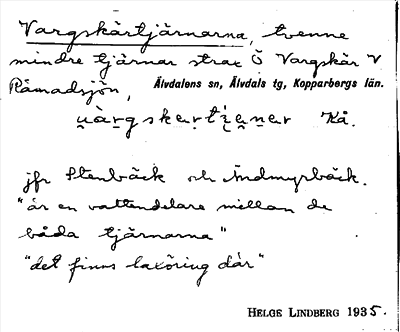 Vargskärtjärnarna, tvenne
mindre tjärnar strax Ö Vargskär V
Råmadsjön,
Älvdalens sn, Älvdals tg, Kopparbergs län.
jfr Stenbäck och Åndmyrbäck.
"är en vattendelare mellan de
båda tjärnarna"
"det finns laxöring där"
HELGE LINDBERG 1935.